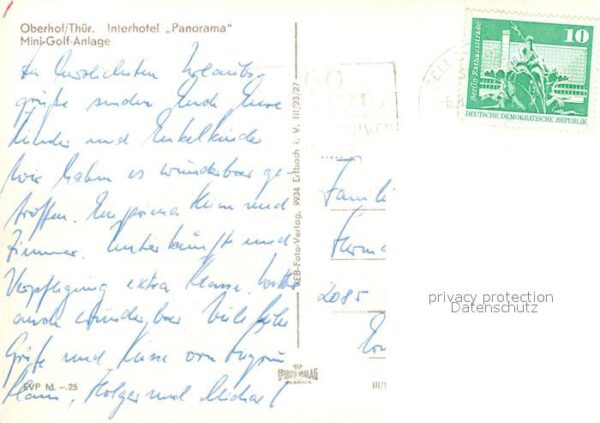 Oberhof/Thür. Interhotel „Panorama"
Mini-Golf-Anlage
herzlichsten Urlaubs-
grüße senden Euch Eure
Kinder und Enkelkinder.
Wir haben es wunderbar ge-
troffen. Ein prima Heim und
Zimmer. Unterkunft und
Verpflegung extra Klasse. Wetter
auch wunderbar. Viele
Grüße und Küsse von
Hans, Holger und Michael
EVP M -.25
VEB-Foto-Verlag, 9934 Erlbach i. V. III/23/27
VEB
FOTO-VERLAG
ERLBACH
10
Berlin, Rathausstraße
DEUTSCHE DEMOKRATISCHE REPUBLIK
Famili
Herma
2085
III/1
privacy protection
Datenschutz